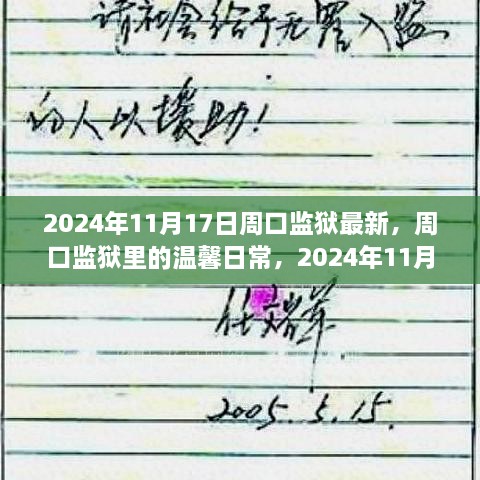 请社会给予无罪入监
的人以援助！
2024年11月17日周口监狱最新，周
口监狱里的温馨日常，2024年11月
任瑞革
2005.5.15.